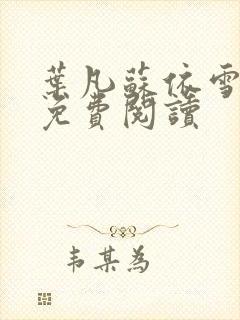 葉凡蘇依雪
免費閱讀
韦某為